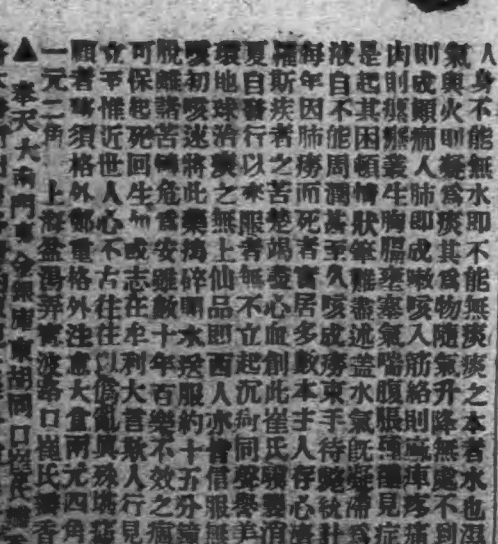 人身不能無水即不能無痰痰之本者水也濕
氣與火即凝為痰其為物隨氣升降無處不到
則成癲癇人肺即成嗽咳入筋絡則麻木疼痛
肉則瘰癧叢生胸膈壅塞氣喘腹脹種種見症
是起其困頓情狀筆難盡述蓋水氣既凝滯為
液自不能周潤甚至久咳成癆束手待斃統計
每年因肺癆而死者實居多數本主人存心濟
福斯疾者之苦楚竭盡心血創此崔氏 消
夏自發行以來服者無不立起沉疴同聲譽美
環地球治痰之無上仙品即西人亦皆信服無
咳初咳迷將此藥搗碎開水送服約十五分鐘
脫離諸苦轉危為安雖數十年百藥不效之痼
可保起死回生 或志在牟利大言欺人行見
立 惟近世人心不古往往以偽亂真殊堪
顧者 須格外鄭重格外注意大盒兩元四角
一元二角 上海盆湯弄寧波路口崔氏 香
▲ 奉天大南門 金銀庫東胡同口崔氏 香